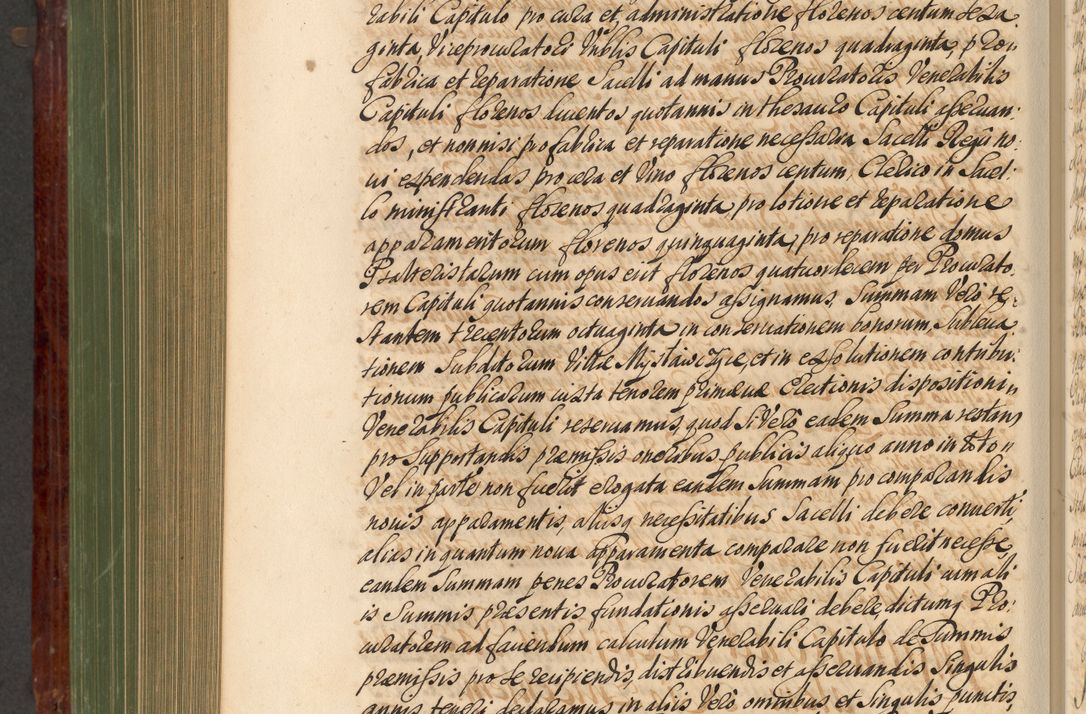 rabili Capitulo pro cura et administratione florenos centum sexa
ginta, Viceprocuratori Vnblis Capituli florenos quadraginta, pro
fabrica et reparatione Sacelli ad manus Procuratoris Venerabilis
Capituli florenos ducentos quotannis in thesauro Capituli asseruan:
dos, et nonnisi pro fabrica et reparatione necessaria Sacelli Regii no:
ui expendendas pro cera et Vino florenos centum, Clerico in Sacel:
lo ministranti florenos quadraginta, pro lotione et reparatione
apparamentorum florenos quinquaginta, pro reparatione domus
Psalteristarum cum opus erit florenos quatuordecem per Procurato:
rem Capituli quotannis conseruandos assignamus, Summam Vero re:
stantem trecentorum octuaginta in conseruationem bonorum, subleua
tionem Subditorum Villæ Mystawczyce, et in exsolutionem contribu:
tionum publicarum iuxta tenorem primæuæ Erectionis dispositioni
Venerabilis Capituli reseruamus, quod si Vero eadem Summa restans
pro supportandis præmissis oneribus publicis aliquo anno in toto
Vel in parte non fuerit erogata eandem Summam pro comparandis
nouis apparamentis, aliisq necessitatibus Sacelli debere conuerti,
alias in quantum noua apparamenta comparare non fuerit necesse
eandem Summam penes Procuratorem Venerabilis Capituli cum ali
is Summis præsentis fundationis asseruari debere, dictumq Pro:
curatorem ad faciendum calculum Venerabili Capitulo de Summis
præmissis pro se recipiendis, distribuendis et asseruandis Singulis
annis teneri declaramus in aliis Vero omnibus et Singulis punctis,